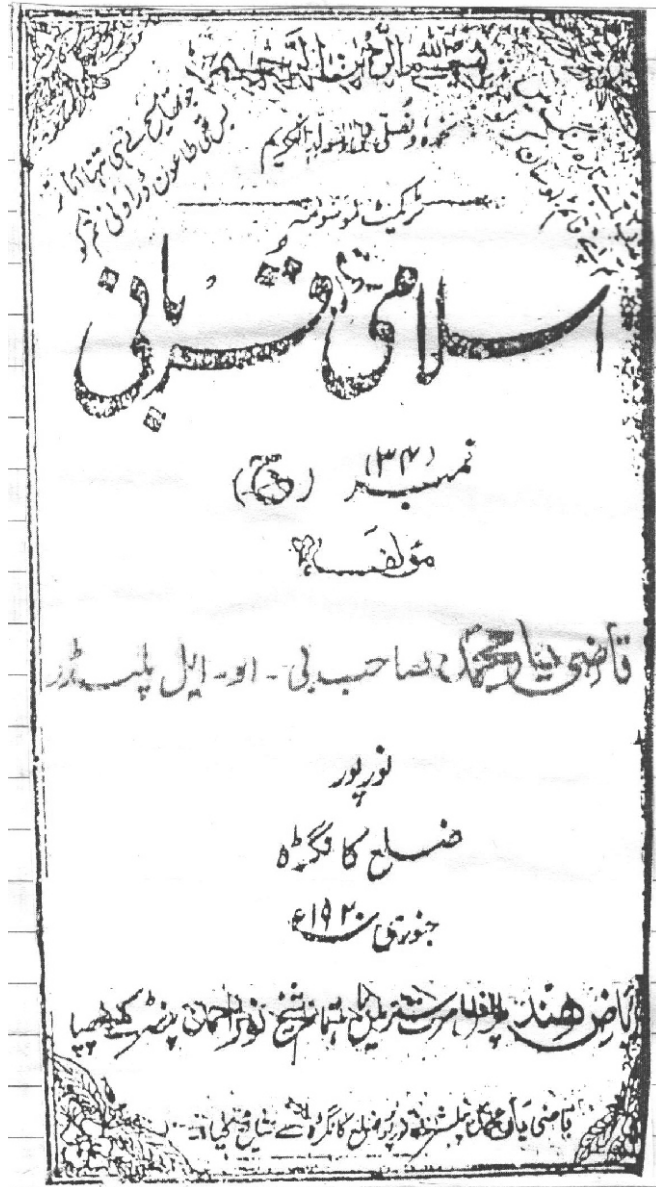 بسم اللہ الرحمٰن الرحیم
نحمدہ و نصلی علیٰ رسولہ الکریم
ٹریکٹ موسومہ
اسلامی قربانی
نمبر (۳۴)
مؤلفہ
قاضی یار محمد صاحب بی - او - ایل پلیڈر
نورپور
ضلع کانگڑہ
جنوری ۱۹۲۰ء
ریاض ھند پریس امرتسر میں باہتمام شیخ نور احمد پرنٹر کے چھپا
قاضی یار محمد پبلشر نورپور ضلع کانگڑہ نے شائع کیا